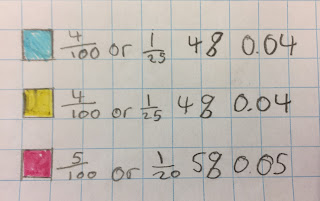 4/100 or 1/25 4% 0.04
4/100 or 1/25 4% 0.04
5/100 or 1/20 5% 0.05